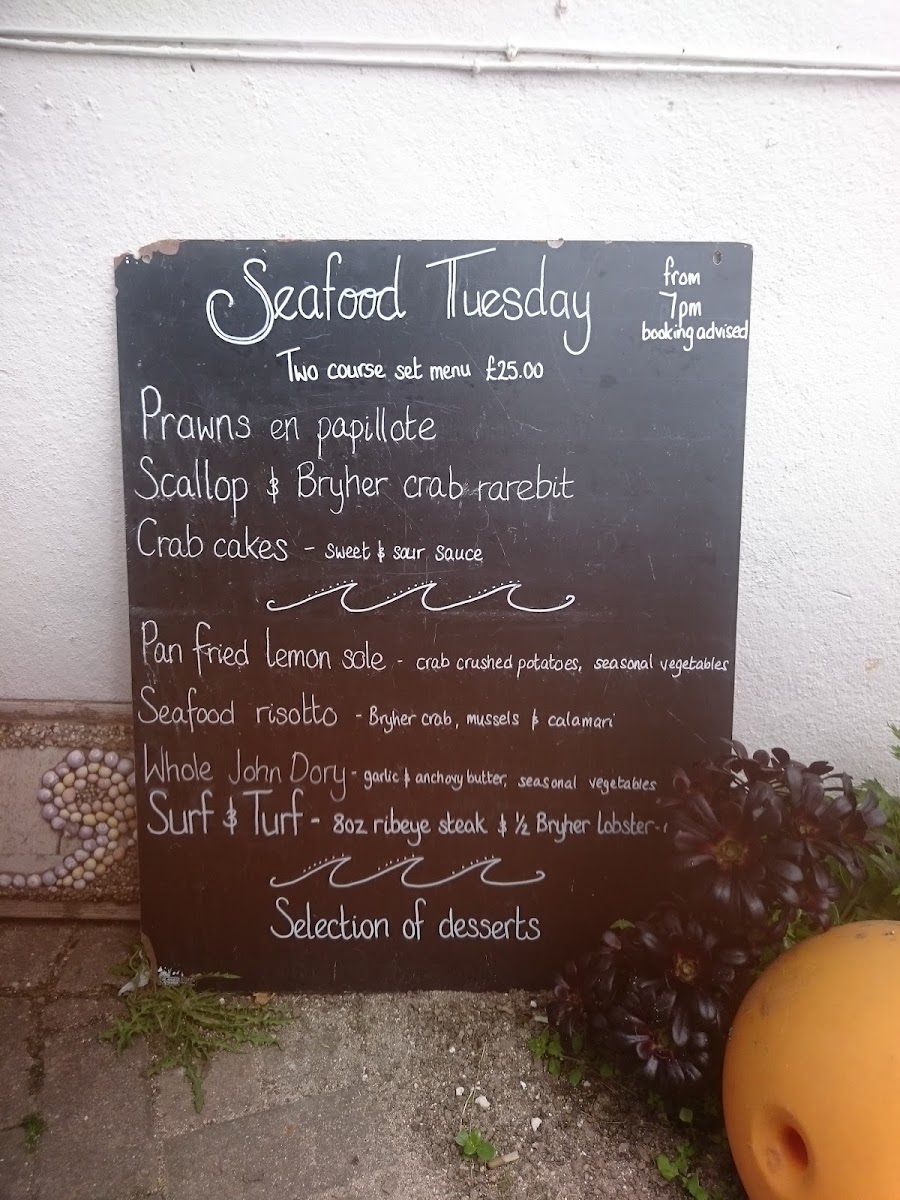 Seafood Tuesday
from
7pm
booking advised
Two course set menu £25.00
Prawns en papillote
Scallop & Bryher crab rarebit
Crab cakes - sweet & sour sauce
Pan fried lemon sole - crab crushed potatoes, seasonal vegetables
Seafood risotto - Bryher crab, mussels & calamari
Whole John Dory - garlic & anchovy butter, seasonal vegetables
Surf & Turf - 8oz ribeye steak & ½ Bryher lobster -
Selection of desserts